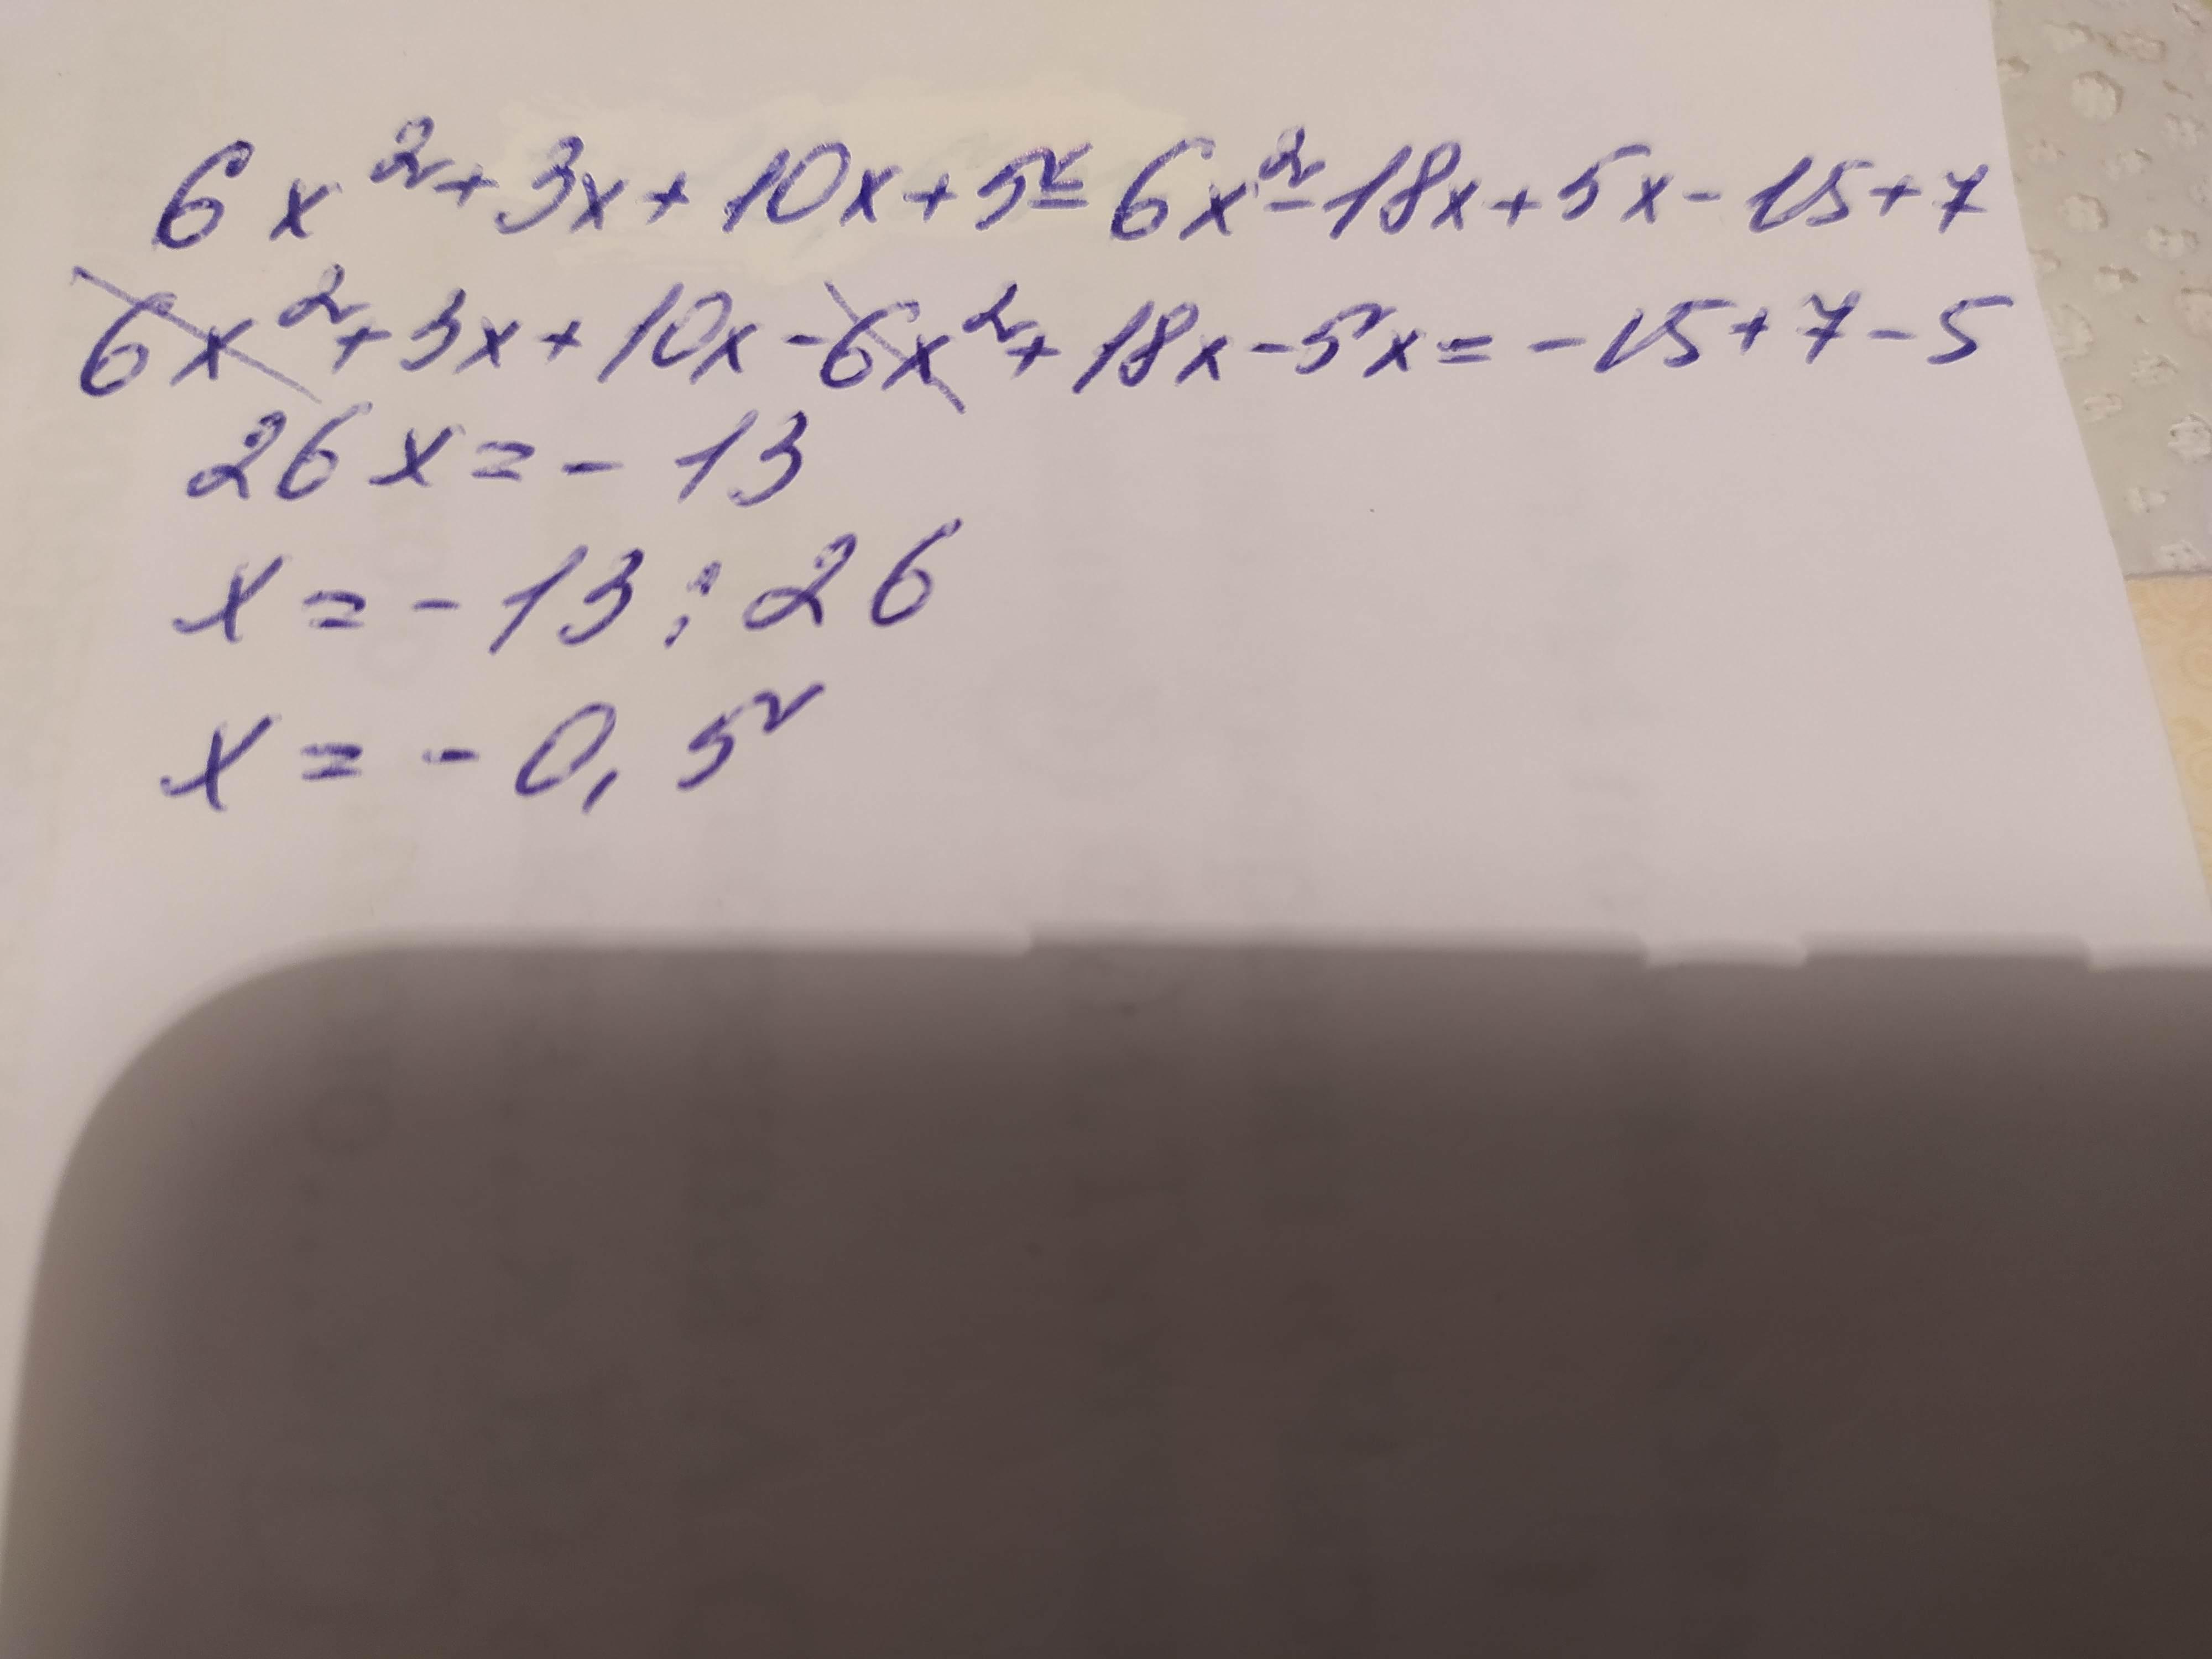 6x²+3x+10x+5=6x²-18x+5x-15+7
6x²+3x+10x-6x²+18x-5x=-15+7-5
26x=-13
x=-13:26
x=-0,5